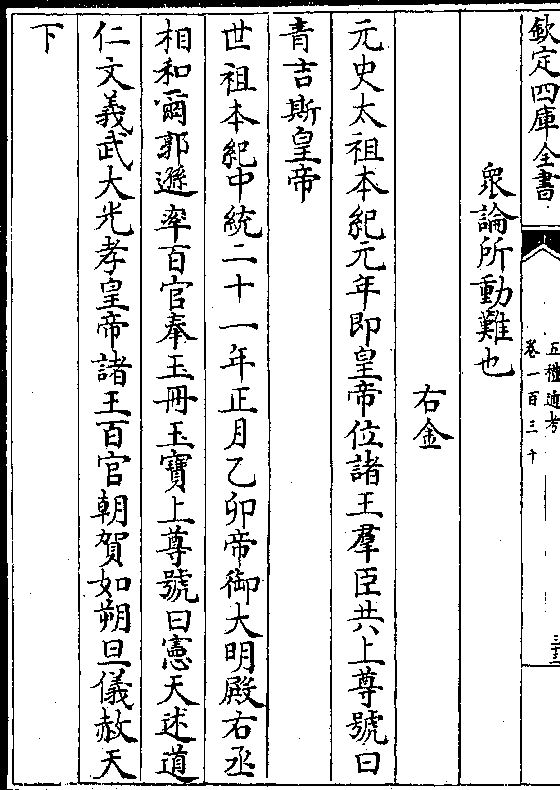 欽定四庫全書
五禮通考
卷一百三十
衆論所動難也
右金
元史太祖本紀元年即皇帝位諸王羣臣共上尊號曰
青吉斯皇帝
世祖本紀中統二十一年正月乙卯帝御大明殿右丞
相和爾郭遜率百官奉玉冊玉寶上尊號曰憲天述道
仁文義武大光孝皇帝諸王百官朝賀如朔旦儀赦天
下